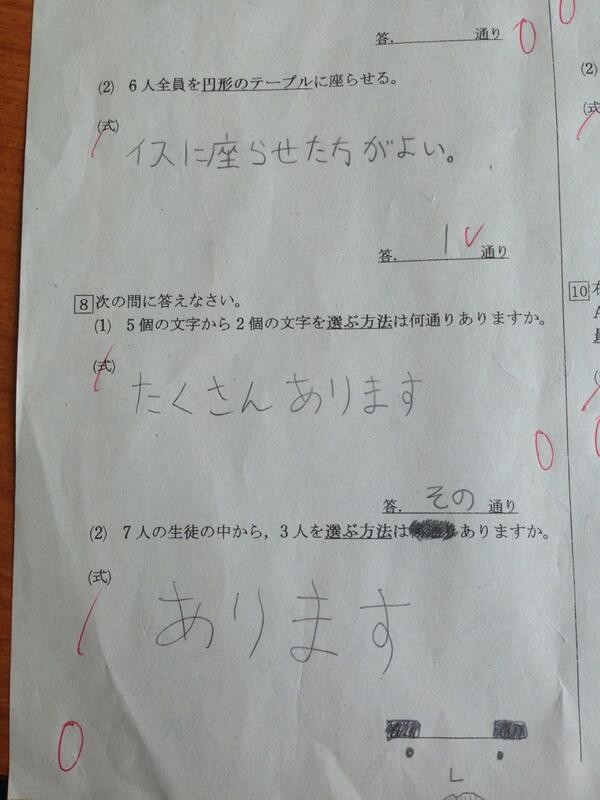 答. 通り
0
0
(2) 6人全員を円形のテーブルに座らせる。
(2)
(式)
イスに座らせた方がよい。
答. 1 通り
8 次の問に答えなさい。
10
(1) 5個の文字から2個の文字を選ぶ方法は何通りありますか。
(式)
たくさん あります
0
答. その 通り
(2) 7人の生徒の中から，3人を選ぶ方法は ありますか。
(式)
あります
0